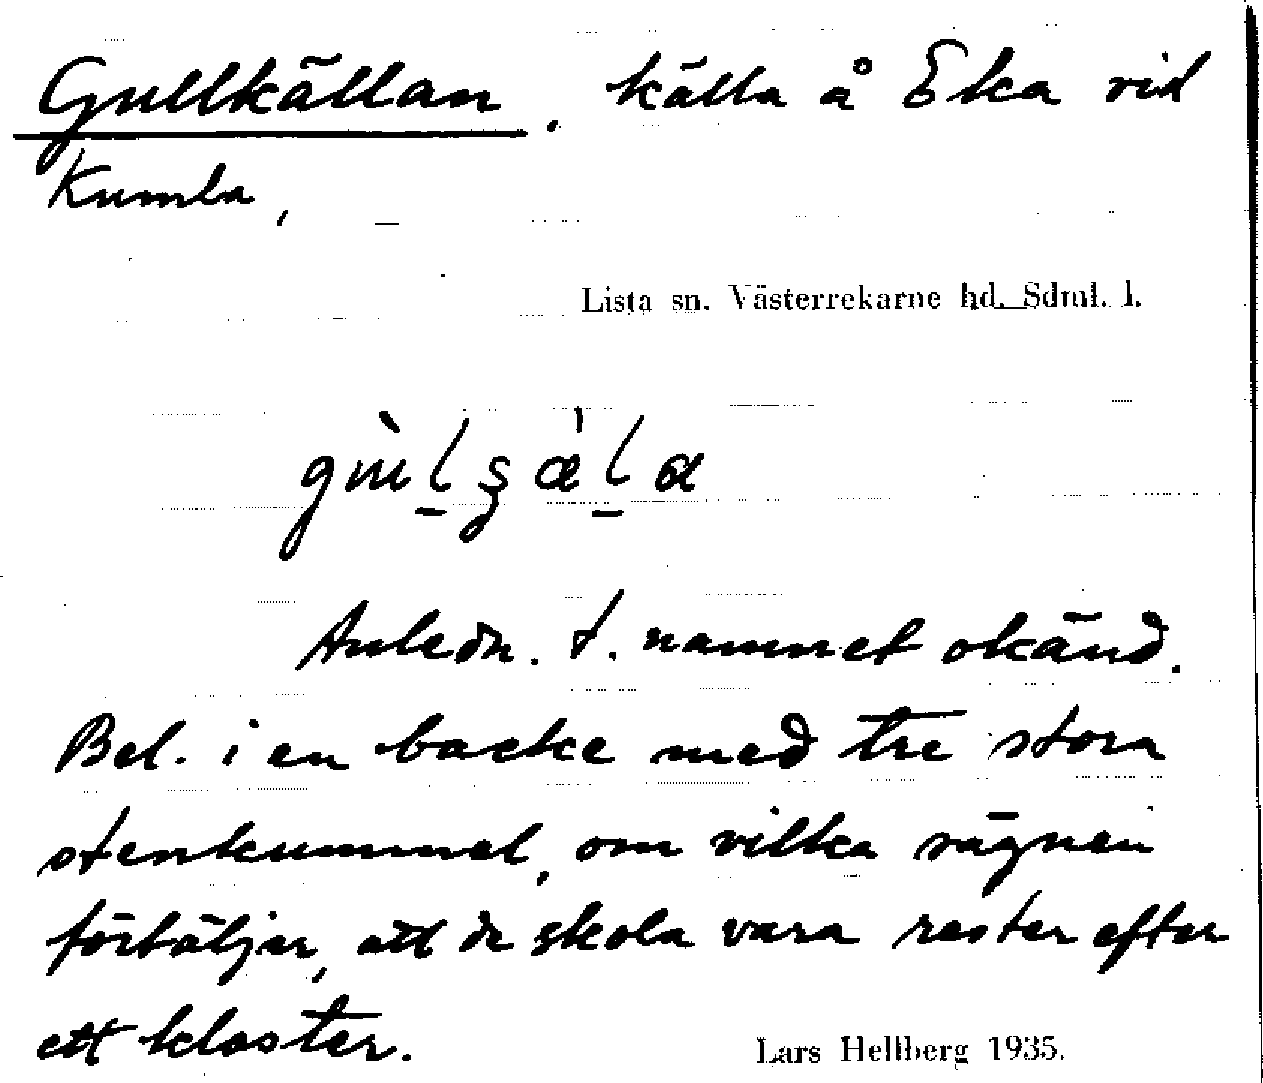 Gullkällan, källa å Eka vid
Kumla,
Lista sn. Västerrekarne hd. Sdml. l.
Anledn. t. namnet okänd.
Bel. i en backe med tre stora
stenkummel, om vilka sägnen
förtäljer, att de skola vara rester efter
ett kloster.
Lars Hellberg 1935.